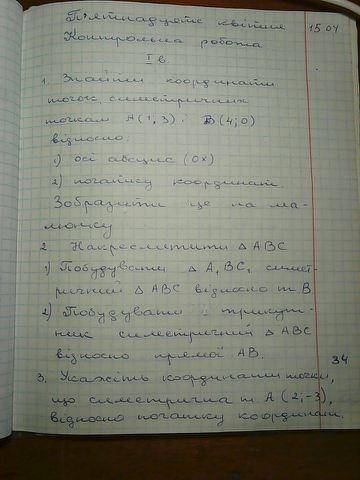 П'ятнадцяте квітня 15.04
Контрольна робота
I в.
1. Знайти координати
точок, симетричних
точкам A(1;3) і B(4;0)
відносно:
1) осі абсцис (OX)
2) початку координат.
Зобразити це на ма-
люнку
2. Накреслити △ABC
1) Побудувати △A₁BC₁ симет-
ричний △ABC відносно т. B
2) Побудувати трикут-
ник симетричний △ABC
відносно прямої AB.
34
3. Укажіть координати точки,
що симетрична т. A(2;-3),
відносно початку координат.